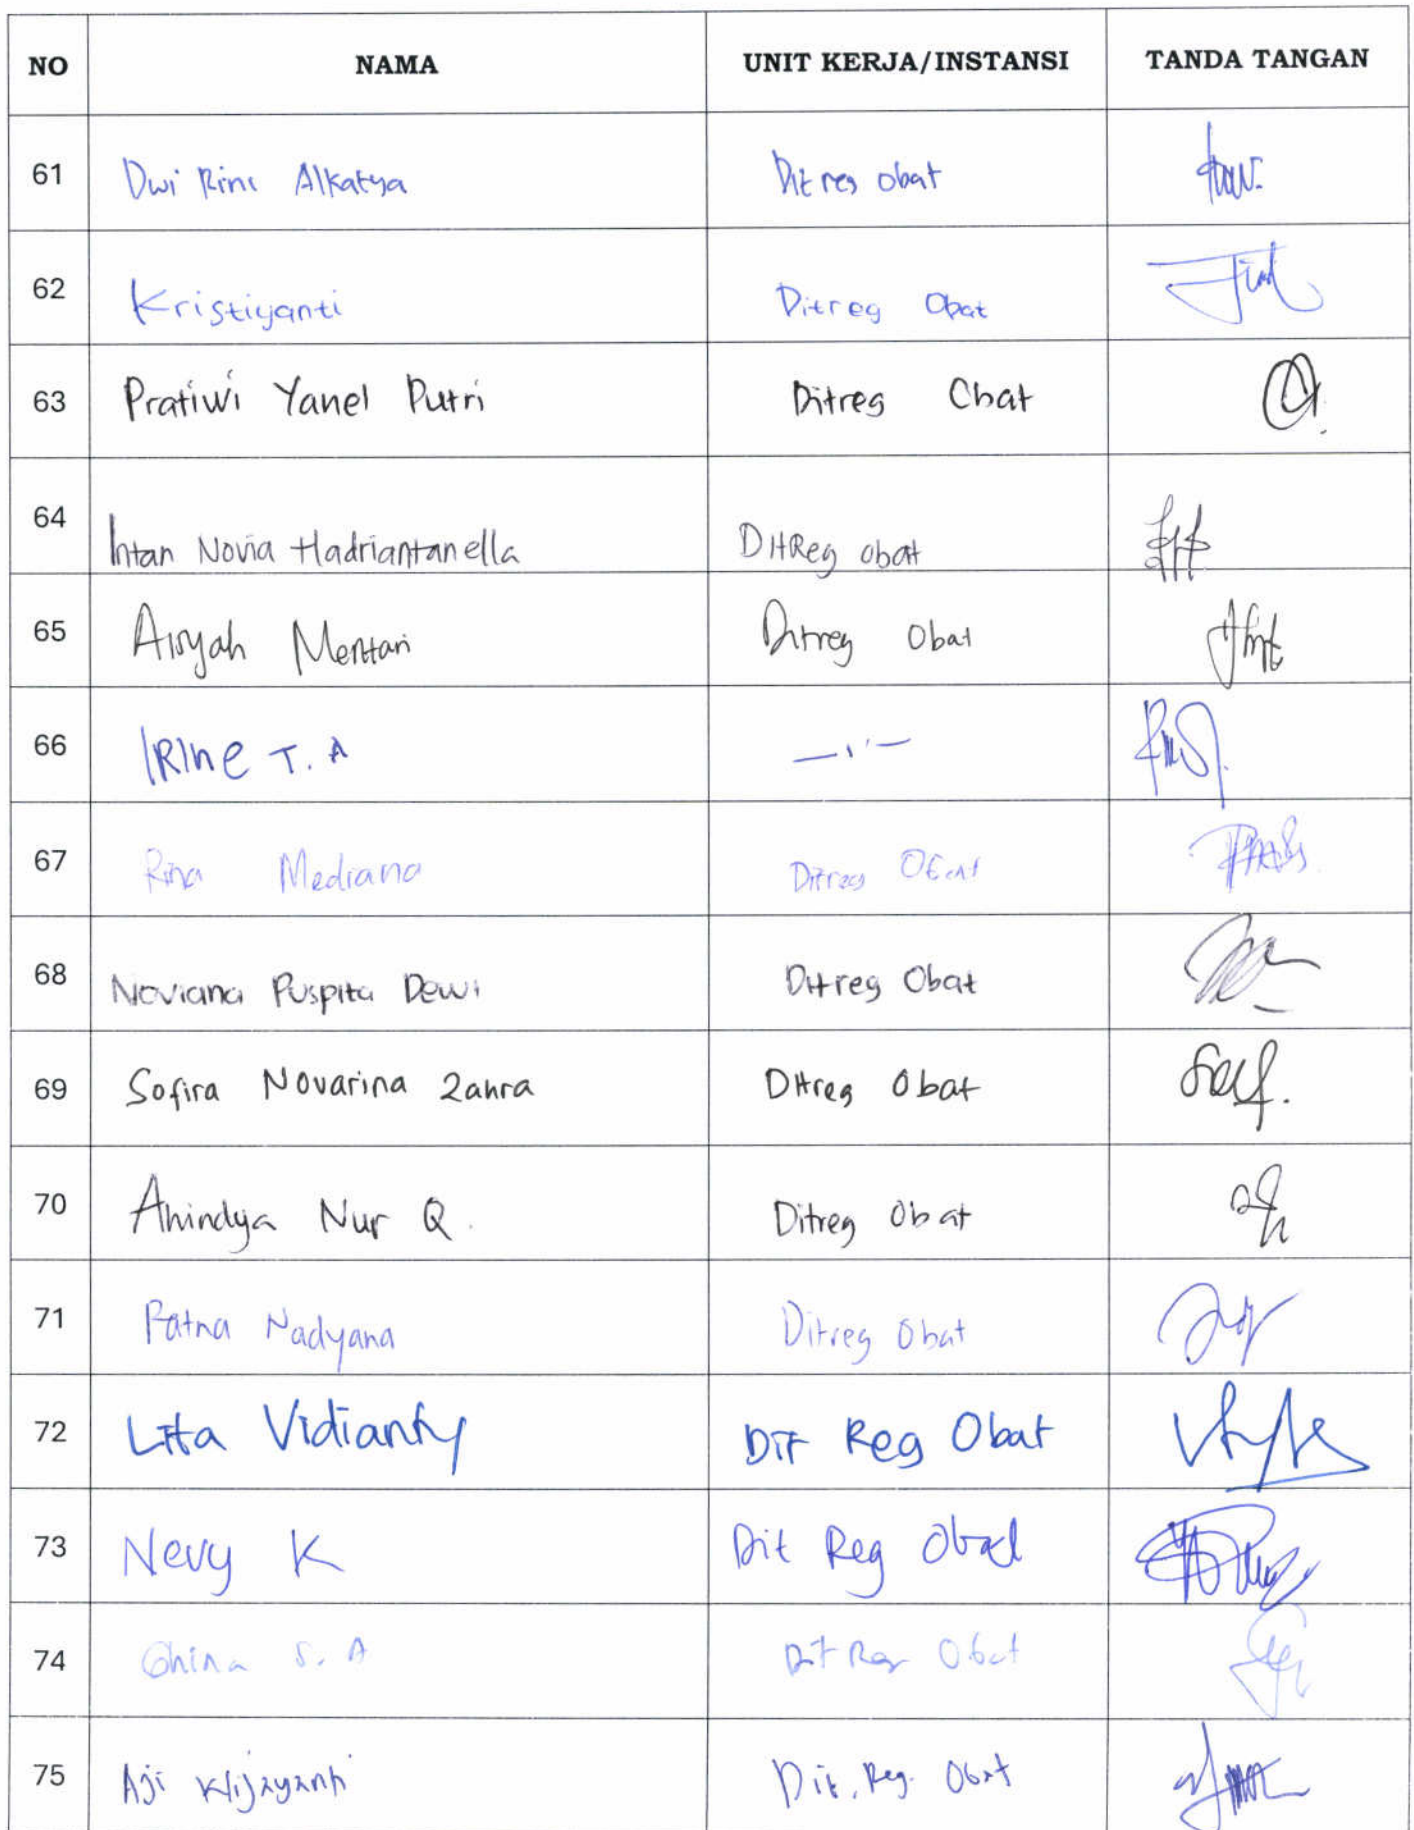 NO NAMA UNIT KERJA/INSTANSI TANDA TANGAN
61 Dwi Rini Alkatya Ditreg obat
62 Kristiyanti Ditreg Obat
63 Pratiwi Yanel Putri Ditreg Obat
64 Intan Novia Hadriantanella DitReg obat
65 Aisyah Mentari Ditreg Obat
66 IRINe T. A —〃—
67 Rina Mediana Ditreg Obat
68 Noviana Puspita Dewi Ditreg Obat
69 Sofira Novarina Zahra Ditreg Obat
70 Anindya Nur Q. Ditreg Obat
71 Ratna Nadyana Ditreg Obat
72 Lita Vidianty Dit Reg Obat
73 Nevy K Dit Reg Obat
74 Ghina S. A Dit Reg Obat
75 Aji Wijayanti Dit. Reg. Obat